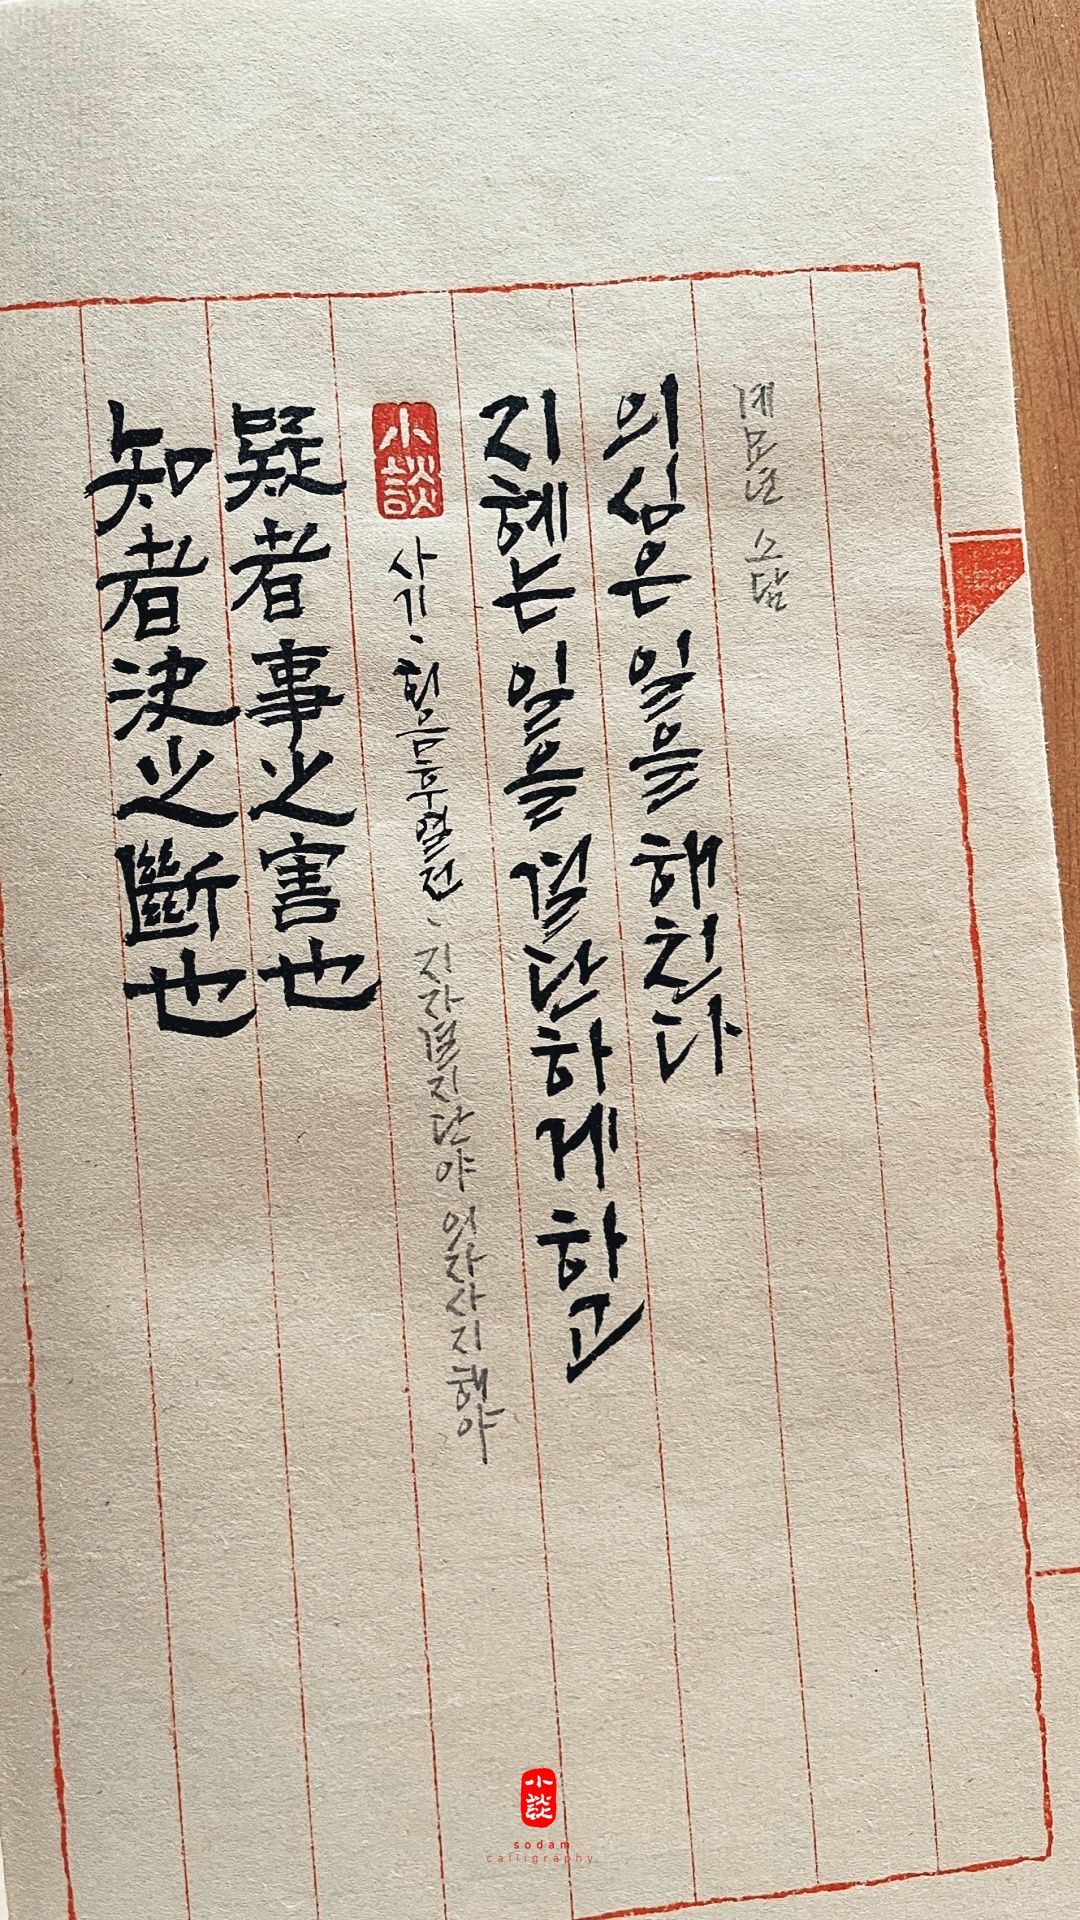 知者決之斷也
疑者事之害也
小談
사기・회음후열전・지자결지단야 의자사지해야
지혜는 일을 결단하게 하고
의심은 일을 해친다
계묘년 소담
小談
sodam
calligraphy